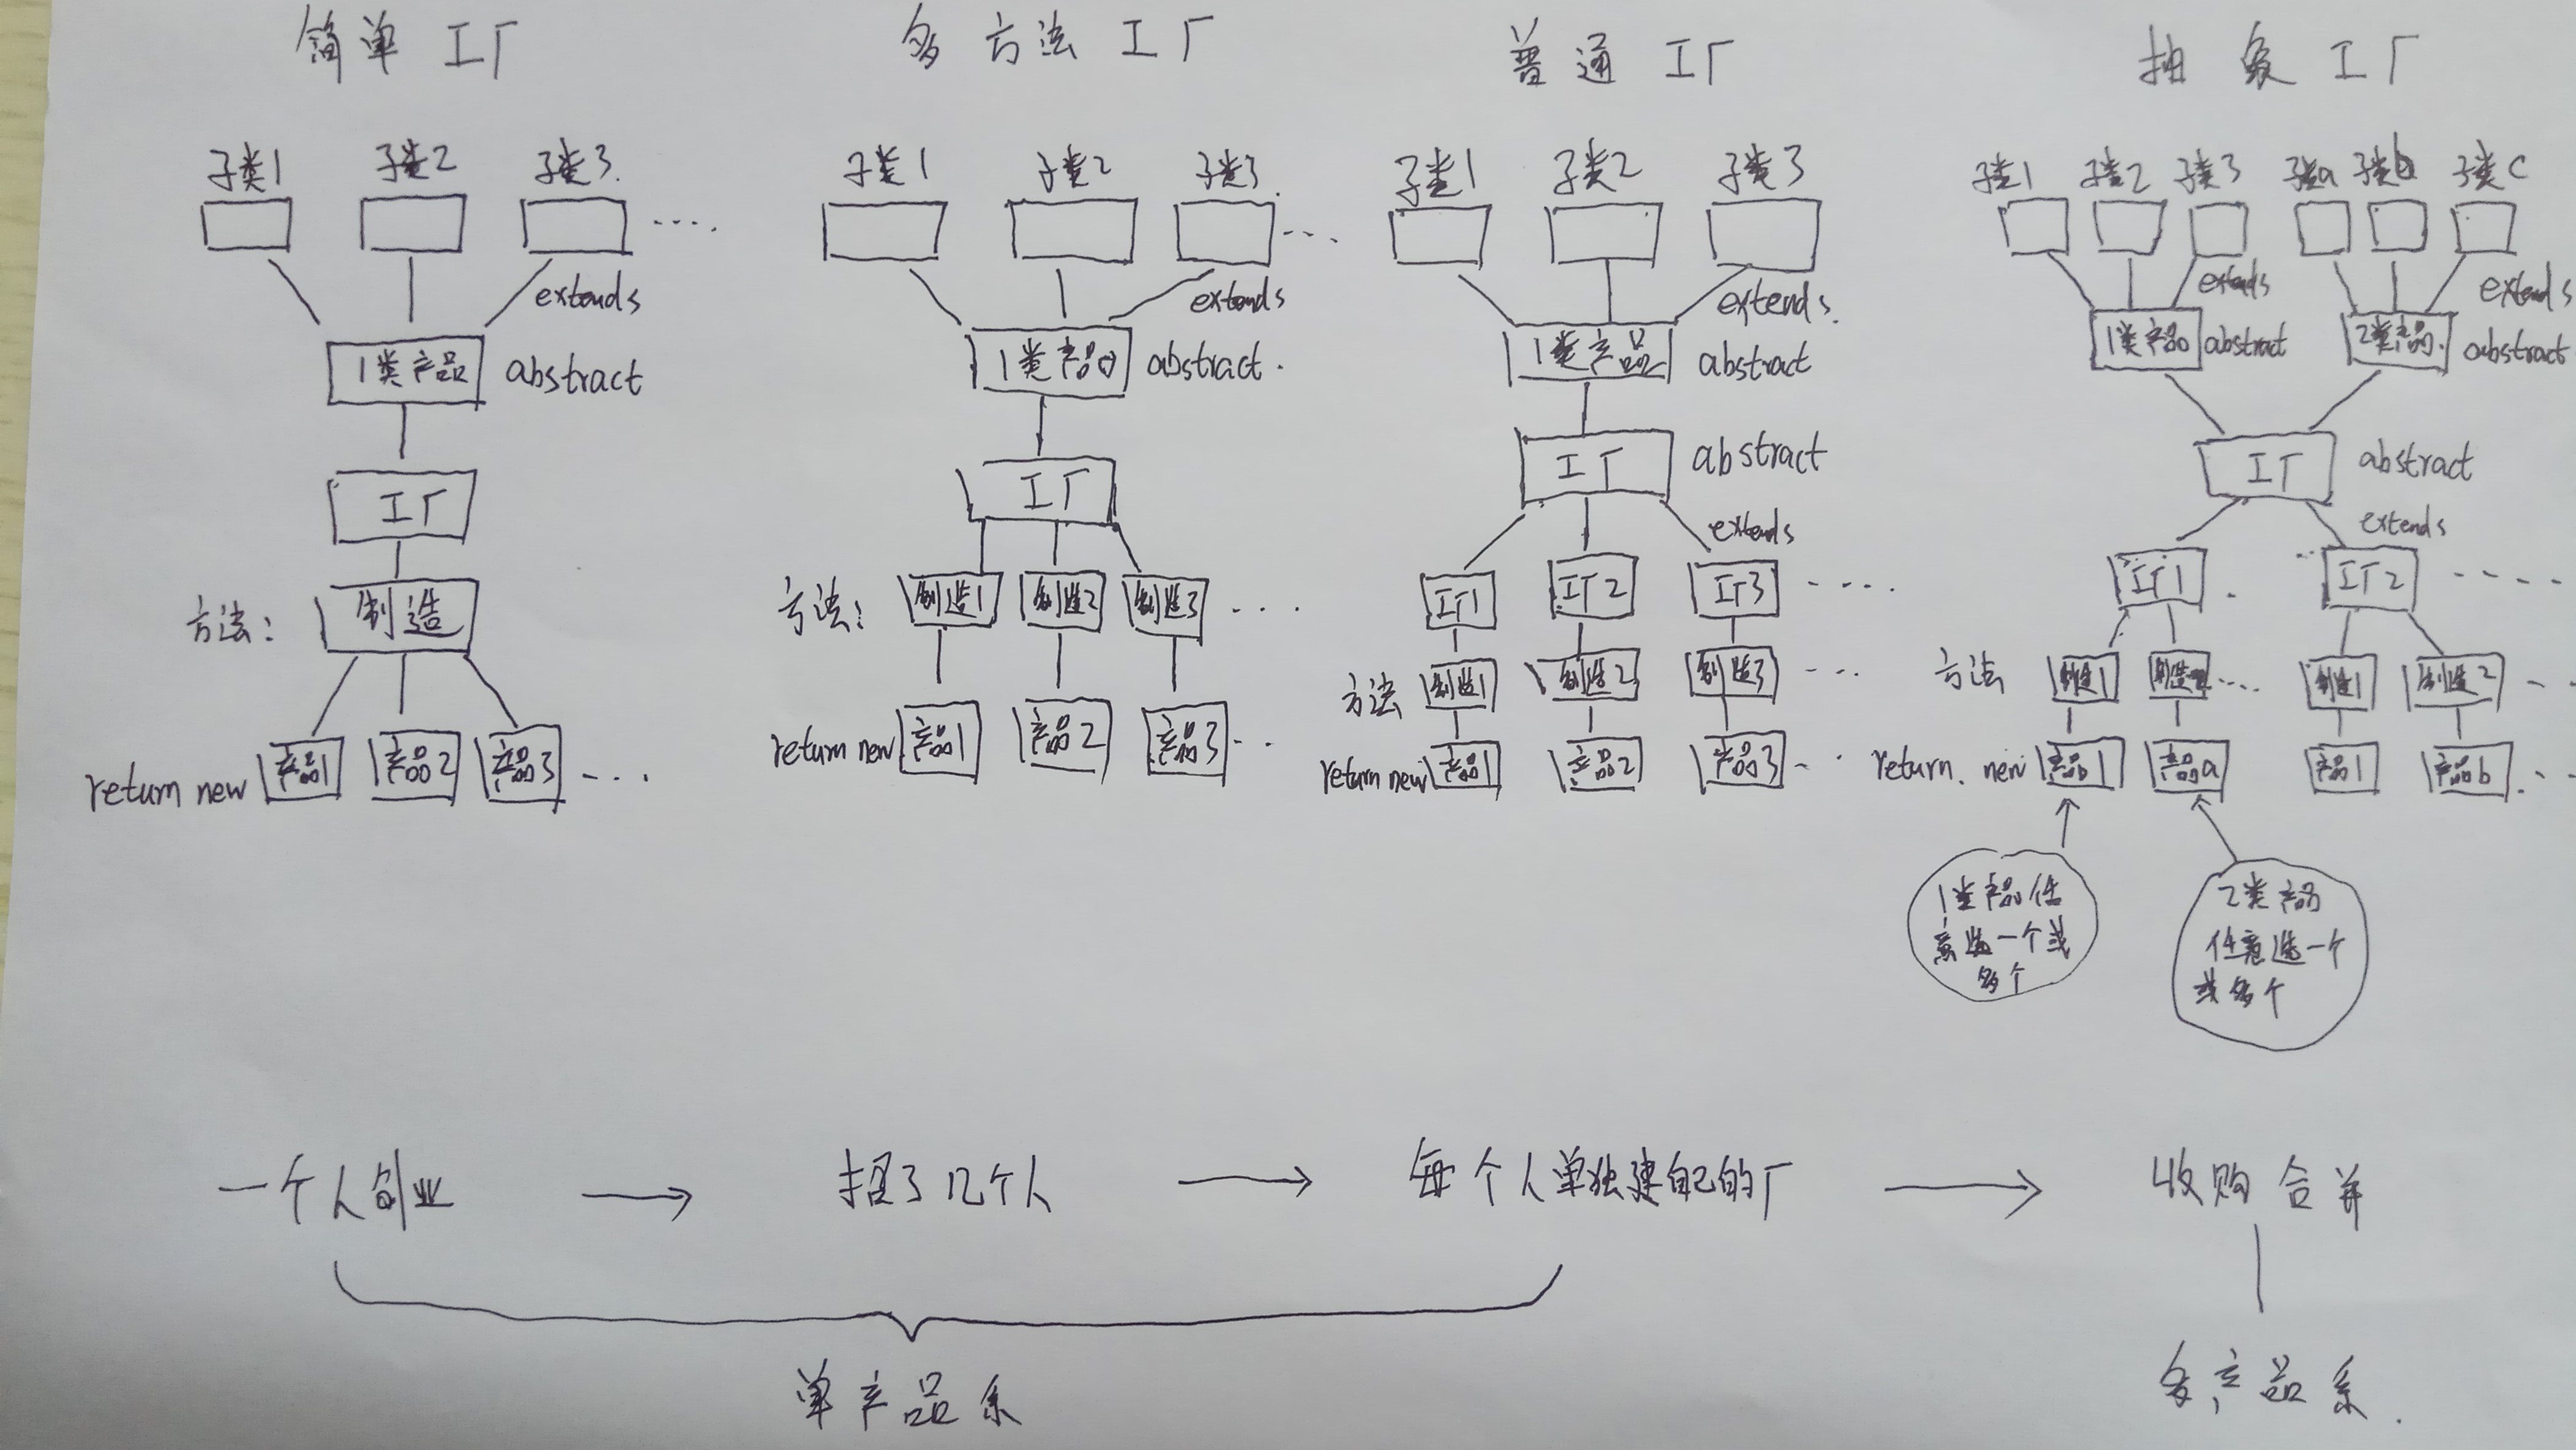 简单工厂
子类1 子类2 子类3
extends
1类产品 abstract
工厂
方法: 制造
return new 产品1 产品2 产品3 ...
多方法工厂
子类1 子类2 子类3
extends
1类产品 abstract.
工厂
方法: 制造1 制造2 制造3 ...
return new 产品1 产品2 产品3 ...
普通工厂
子类1 子类2 子类3
extends.
1类产品 abstract
工厂 abstract
extends
工厂1 工厂2 工厂3 ....
方法 制造1 制造2 制造3 ...
return new 产品1 产品2 产品3 ...
抽象工厂
子类1 子类2 子类3 子类a 子类b 子类c
extends extends
1类产品 abstract 2类产品. abstract
工厂 abstract
extends
工厂1 工厂2
方法 制造1 制造2 .... 制造1 制造2
return. new 产品1 产品a 产品1 产品b
1类产品任
意选一个或
多个
2类产品
任意选一个
或多个
一个人创业 → 招了几个人 → 每个人单独建自己的厂 → 收购合并
单产品系
多产品系.